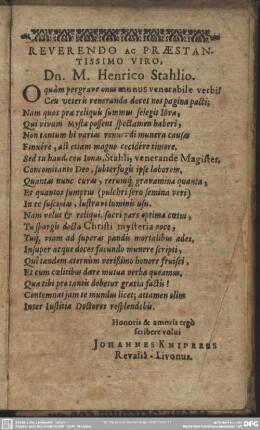 REVERENDO AC PRÆSTAN-
TISSIMO VIRO,
Dn. M. Henrico Stahlio.
O quàm pergrave onus munus venerabile verbi!
Ceu veteris veneranda docet nos pagina pacti;
Nam quos præ reliquis summus selegit Iöva,
Qui vivum Mysta possent spectamen haberi,
Non tantùm hi varias renuêre di munera causas
Finxêre, ast etiam magno cecidêre timore.
Sed tu haud, ceu Ionas, Stahli, venerande Magister,
Concomitante Deo, subterfugis ipse laborem,
Quantas nunc curas, rerumq; gravamina quanta,
Et quantos sumptus (pulchri fers semina veri)
In te suscipias, lustravi luminis usu.
Nam velut & reliqui, sacri pars optima cœtus,
Tu spargis docta Christi mysteria voce,
Tuq; viam ad superas pandis mortalibus ædes,
Insuper atque doces facundo munere scripti,
Qui tandem æternùm verißimo honore fruisci,
Et cum cœlitibus dare mutua verba queamus,
Quæ tibi pro tantis debetur gratia factis!
Contemnat jam te mundus licet; attamen olim
Inter Iustitiæ Doctores resplendebis.
Honoris & amoris ergò
scribere volui
JOHANNES KNIPERUS
Revaliâ-Livonus.